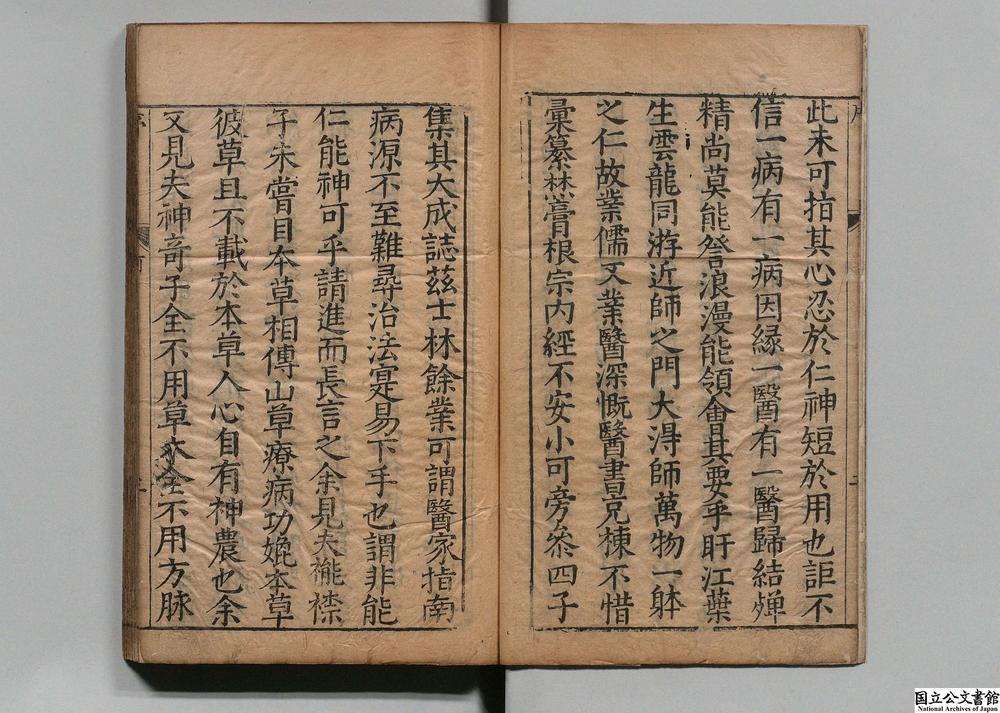 此未可指其心忍於仁神短於用也詎不
信一病有一病因縁一醫有一醫歸結殫
精尚莫能詧浪漫能領會其要乎盱江葉
生雲龍同游近師之門大淂師萬物一躰
之仁故業儒又業醫深慨醫書兄棟不惜
彙纂焚膏根宗内經不安小可旁叅四子
集其大成誌兹士林餘業可謂醫家指南
病源不至難尋治法寔易下手也謂非能
仁能神可乎請進而長言之余見夫襹褷
子未嘗目本草相傳山草療病功媲本草
彼草且不載於本草人心自有神農也余
又見夫神竒子全不用草木全不用方脉
国立公文書館
National Archives of Japan